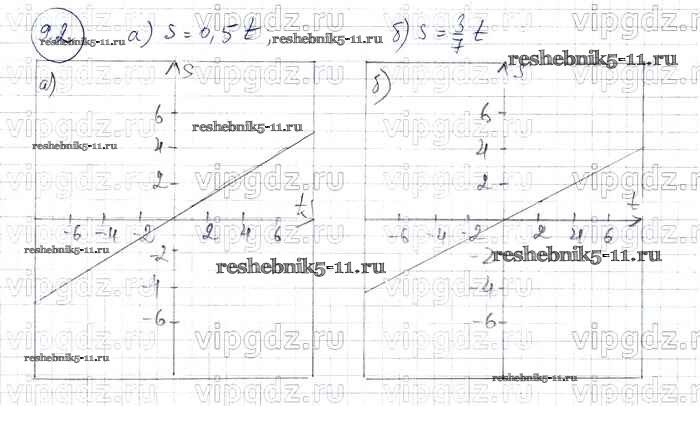 9.2 а) s = 0,5t, б) s = 3/7 t
reshebnik5-11.ru reshebnik5-11.ru
reshebnik5-11.ru
а) s б) s
6 6
reshebnik5-11.ru
4 4
reshebnik5-11.ru
2 2
t t
-6 -4 -2 2 4 6 -6 -4 -2 2 4 6
-2 -2
reshebnik5-11.ru reshebnik5-11.ru
reshebnik5-11.ru
-4 -4
-6 -6
reshebnik5-11.ru
reshebnik5-11.ru
vipgdz.ru